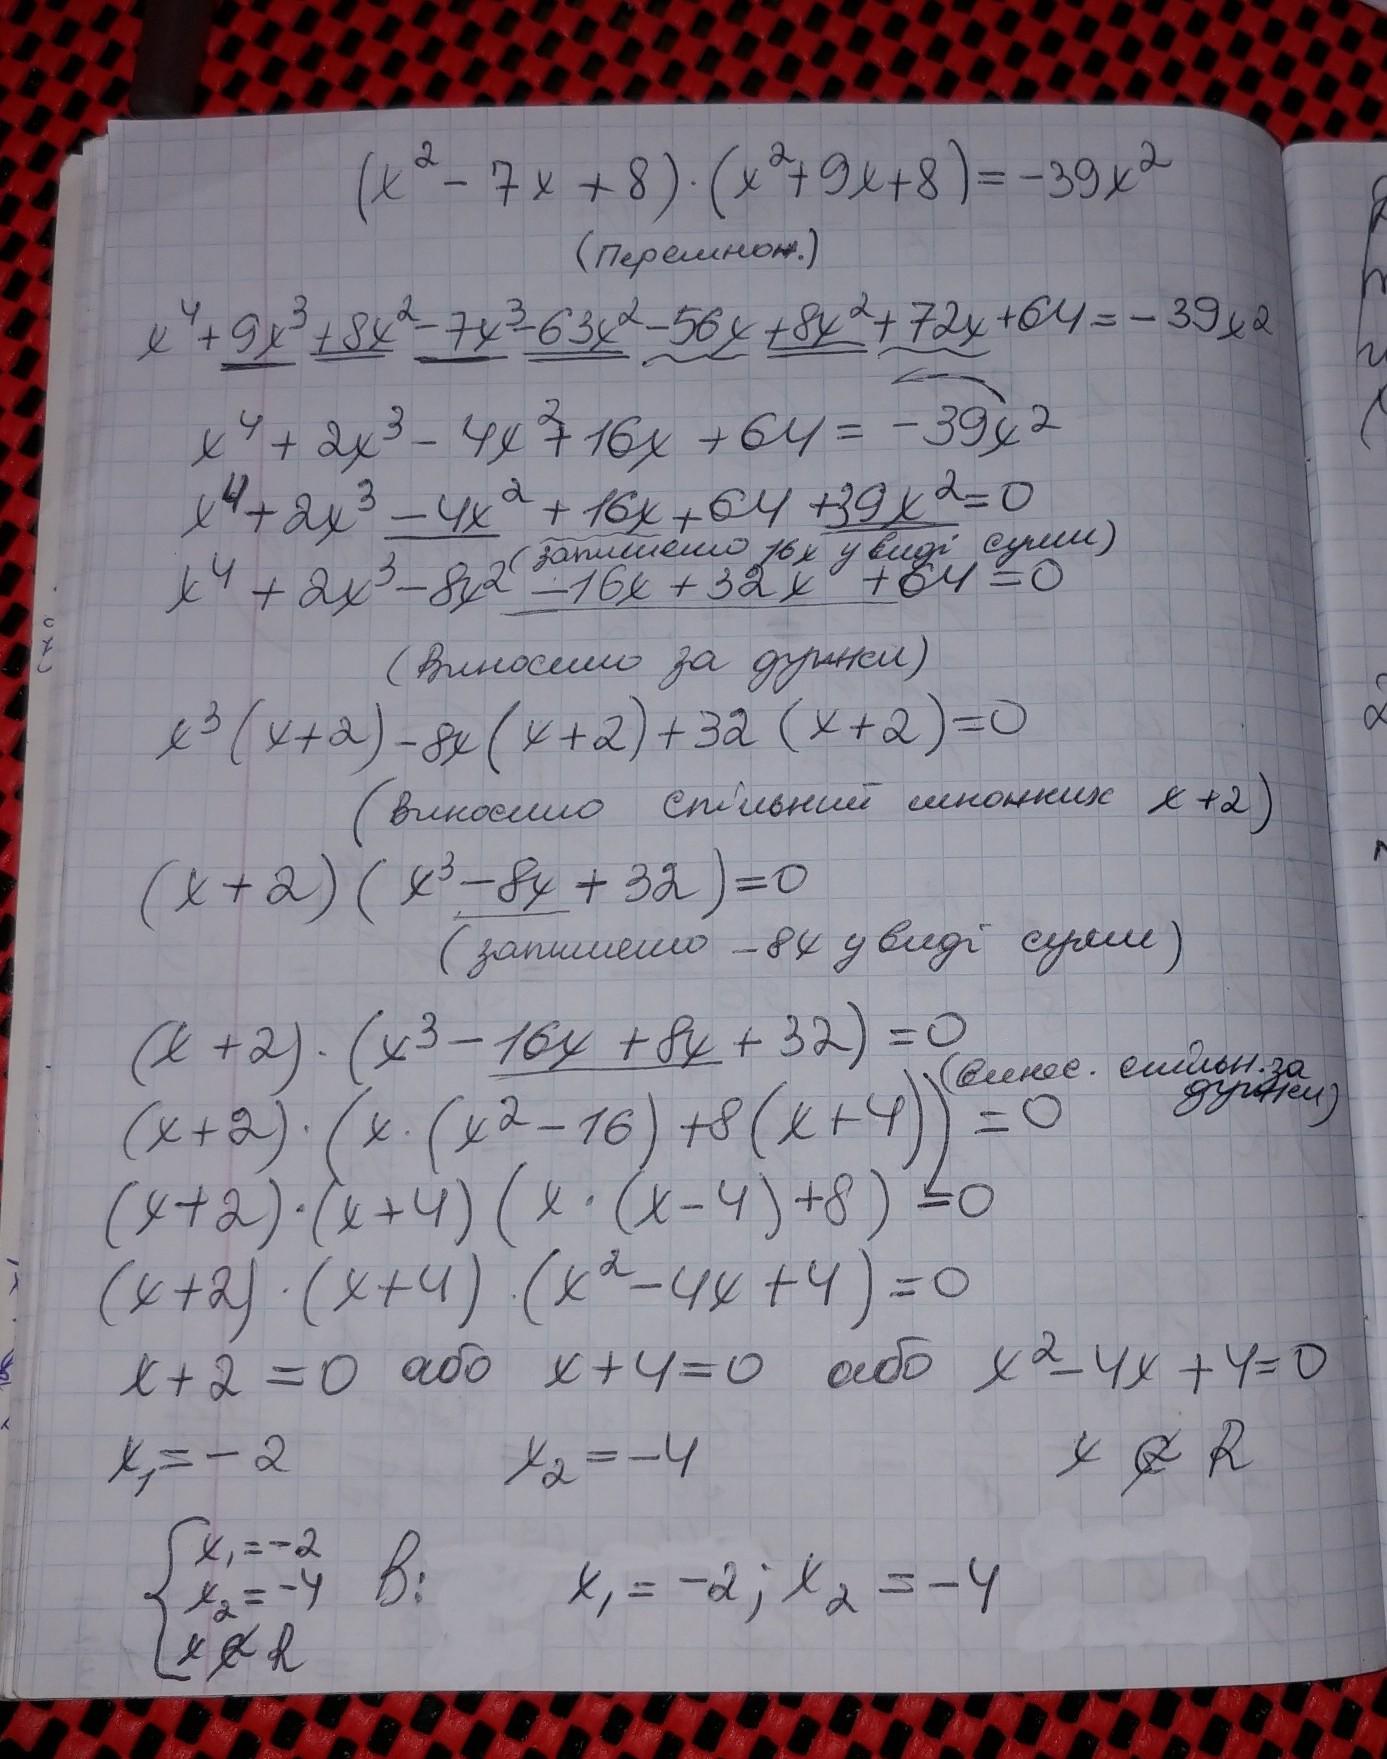 (x² - 7x + 8) · (x² + 9x + 8) = -39x²
(Перемнож.)
x⁴ + 9x³ + 8x² - 7x³ - 63x² - 56x + 8x² + 72x + 64 = -39x²
x⁴ + 2x³ - 4x² + 16x + 64 = -39x²
x⁴ + 2x³ - 4x² + 16x + 64 + 39x² = 0
(запишемо 16x у виді суми)
x⁴ + 2x³ - 8x² - 16x + 32x + 64 = 0
(Виносимо за дужки)
x³(x+2) - 8x(x+2) + 32(x+2) = 0
(Виносимо спільний множник x+2)
(x+2)(x³ - 8x + 32) = 0
(запишемо -8x у виді суми)
(x+2) · (x³ - 16x + 8x + 32) = 0
(винес. спільн. за дужки)
(x+2) · (x · (x² - 16) + 8(x+4)) = 0
(x+2) · (x+4) (x · (x-4) + 8) = 0
(x+2) · (x+4) · (x² - 4x + 4) = 0
x+2 = 0 або x+4 = 0 або x² - 4x + 4 = 0
x₁ = -2 x₂ = -4 x ∉ R
{ x₁ = -2
x₂ = -4 В: x₁ = -2; x₂ = -4
x ∉ R